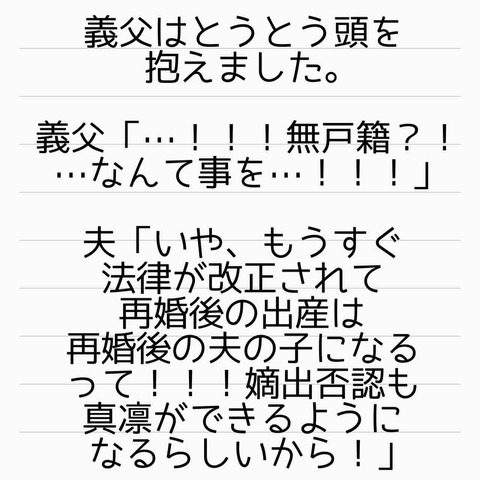 義父はとうとう頭を
抱えました。
義父「…！！！無戸籍？！
…なんて事を…！！！」
夫「いや、もうすぐ
法律が改正されて
再婚後の出産は
再婚後の夫の子になる
って！！！嫡出否認も
真凛ができるように
なるらしいから！」